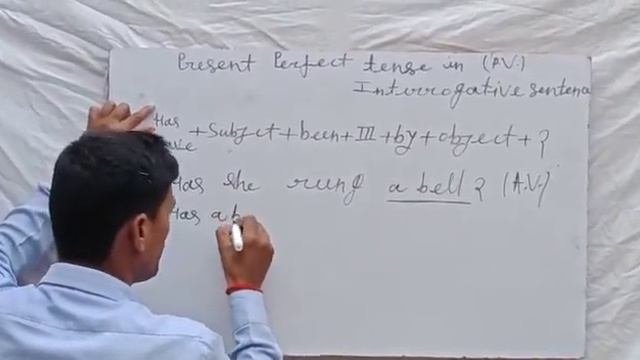 Present Perfect tense in (A.V.)
Interrogative sentence
Has
+ Subject + been + III + by + object + ?
Has she rung a bell? (A.V.)
Has a b